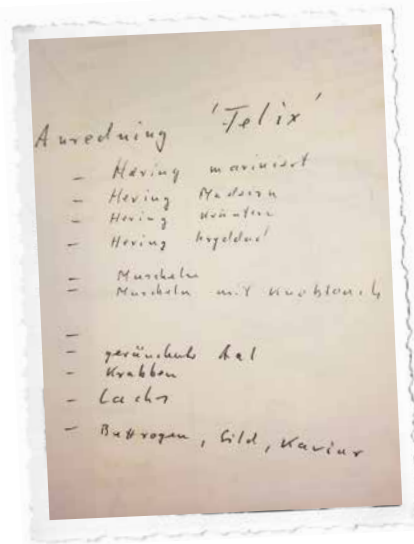 Anredning 'Felix'
- Hering mariniert
- Hering Madeira
- Hering Kräuter
- Hering kryddad
- Muscheln
- Muscheln mit Knoblauch
-
- geräucherter Aal
- Krabben
- Lachs
- Buttrogen, Sild, Kaviar